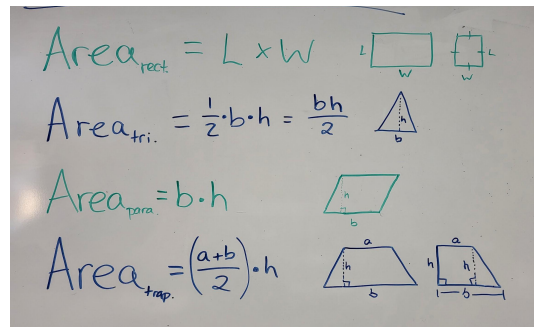 Area rect. = L x W L W L W
Area tri. = 1/2 • b • h = bh/2 h b
Area para. = b • h h b
Area trap. = (a+b/2) • h a h b a h h b